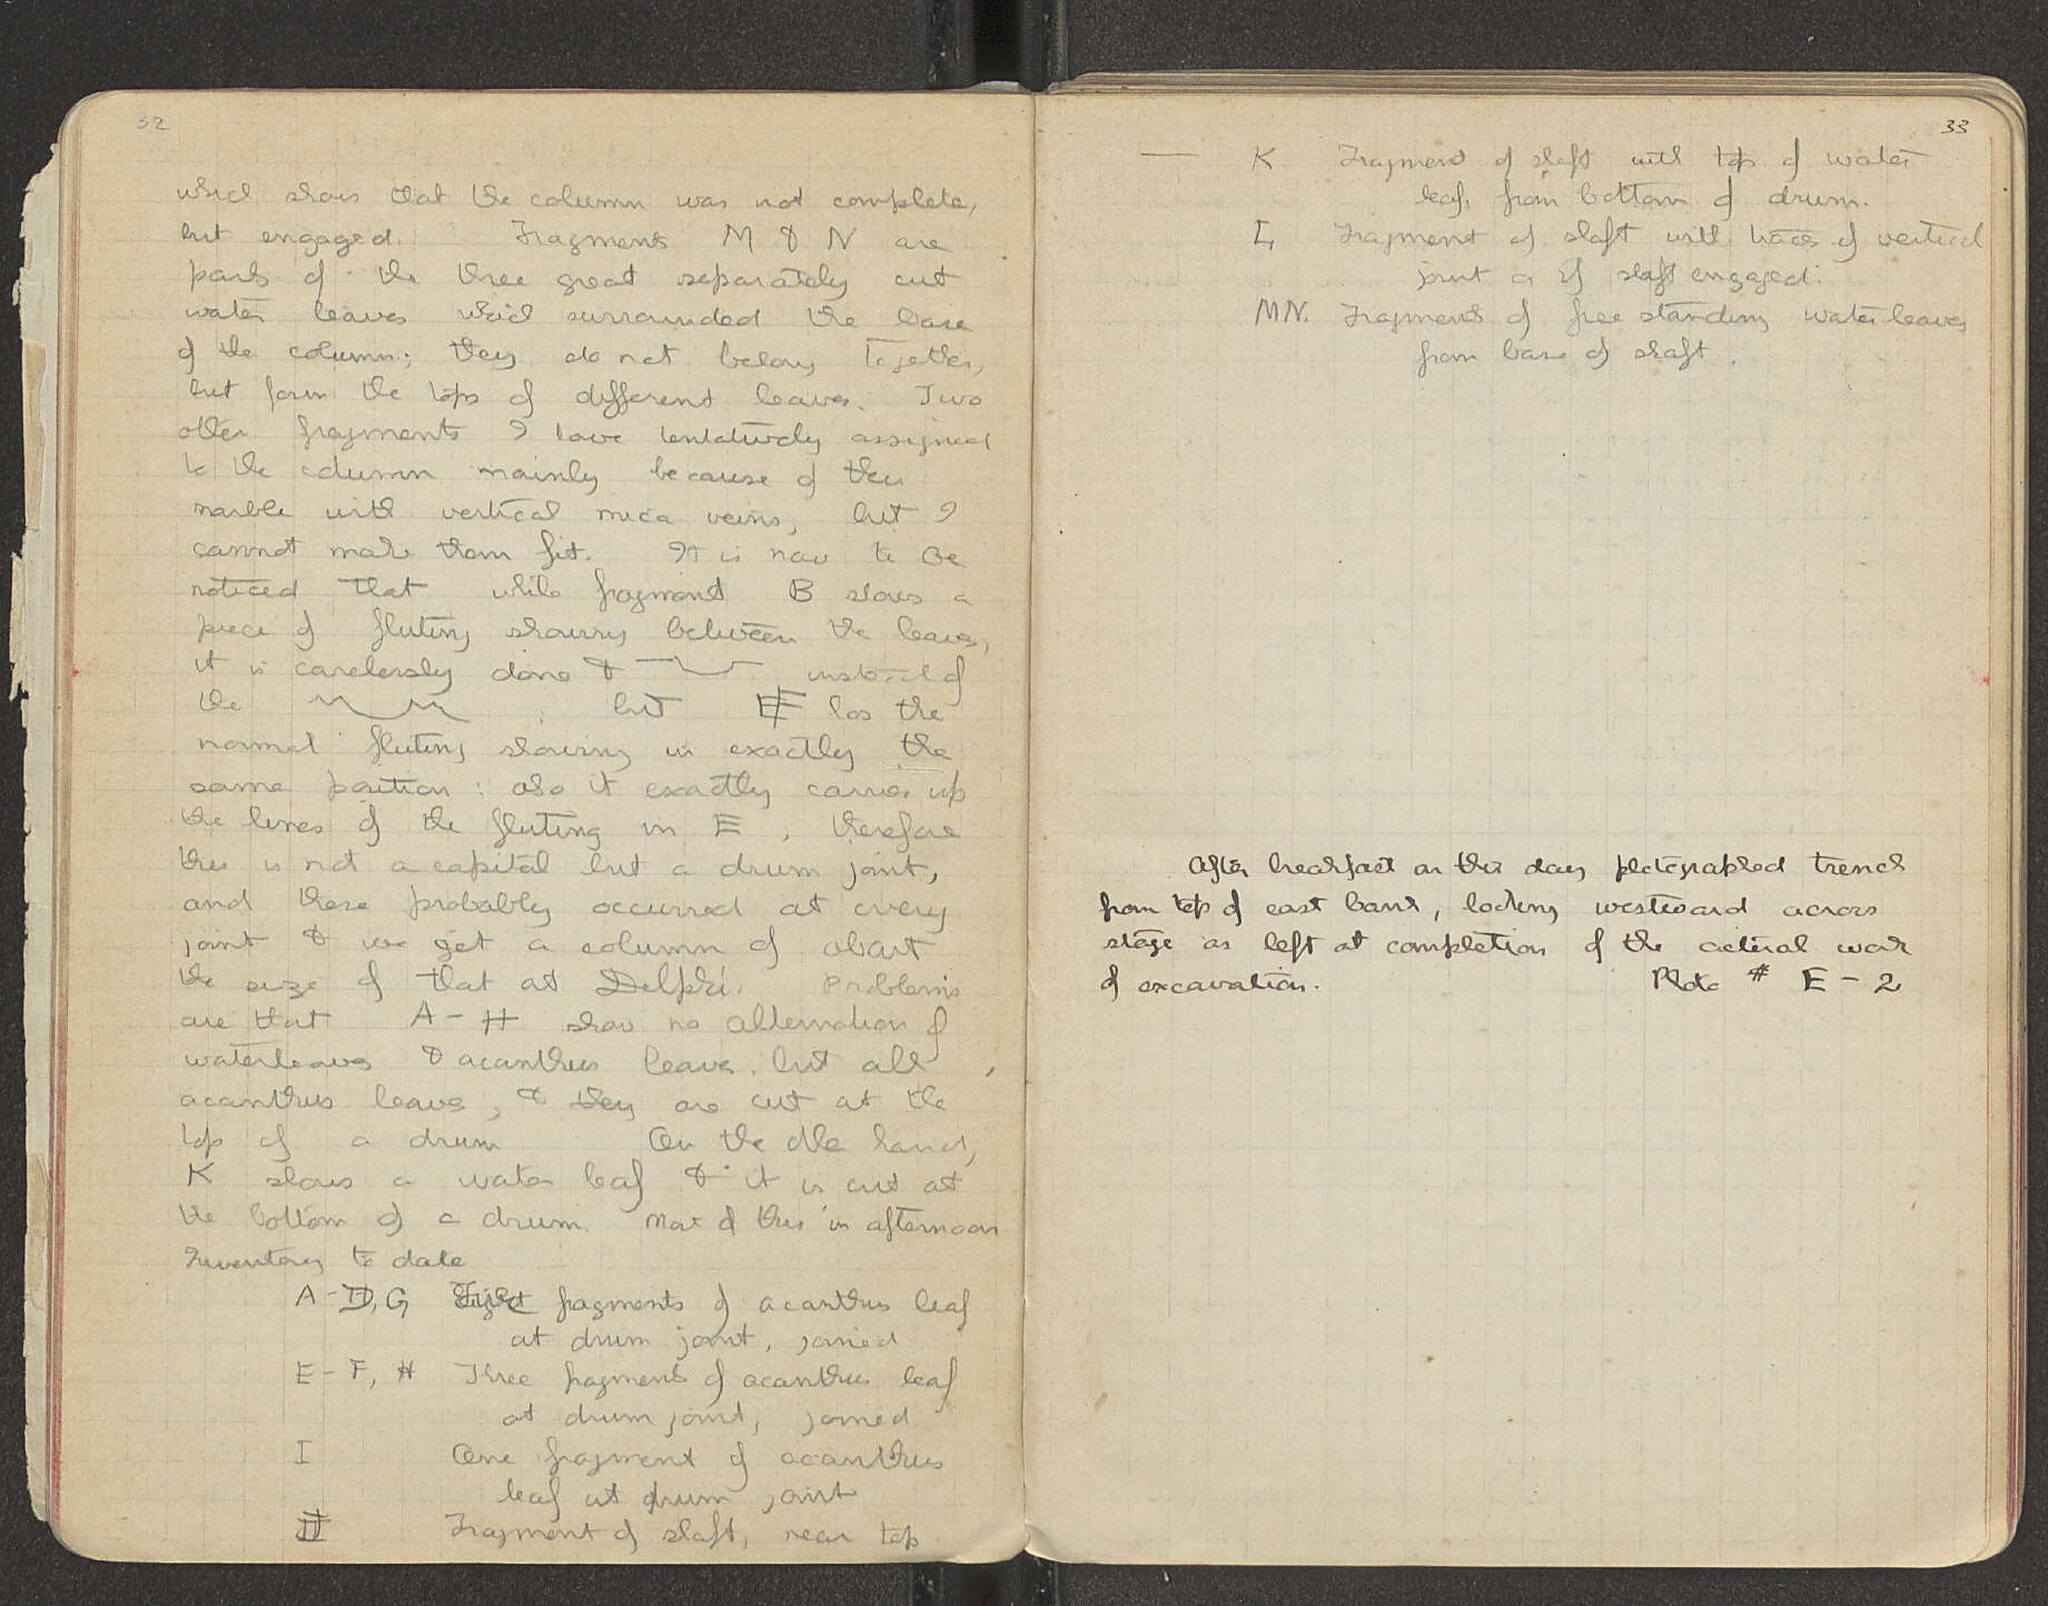 32
which shows that the column was not complete,
but engaged. Fragments M & N are
parts of the three great separately cut
water leaves which surrounded the base
of the column; they do not belong together,
but form the tops of different leaves. Two
other fragments I have tentatively assigned
to the column mainly because of their
marble with vertical mica veins, but I
cannot make them fit. It is now to be
noticed that while fragment B shows a
piece of fluting showing between the leaves,
it is carelessly done & instead of
the ; but has the
normal fluting showing in exactly the
same position: also it exactly carries up
the lines of the fluting in E, therefore
this is not a capital but a drum joint,
and these probably occurred at every
joint & we get a column of about
the size of that at Delphi. Problems
are that A-H show no alternation of
waterleaves & acanthus leaves, but all
acanthus leaves, & they are cut at the
top of a drum On the other hand,
K shows a water leaf & it is cut at
the bottom of a drum. More of this in afternoon
Inventory to date
A-D, G Five fragments of acanthus leaf
at drum joint, joined
E-F, H Three fragments of acanthus leaf
at drum joint, joined
I One fragment of acanthus
leaf at drum joint
Fragment of shaft, near top
33
— K Fragment of shaft with top of water
leaf, from bottom of drum.
L Fragment of shaft with traces of vertical
joint as if shaft engaged.
MN. Fragments of free standing water leaves
from base of shaft.
After breakfast on this day photographed trench
from top of east bank, looking westward across
stage as left at completion of the actual work
of excavation. Photo # E-2